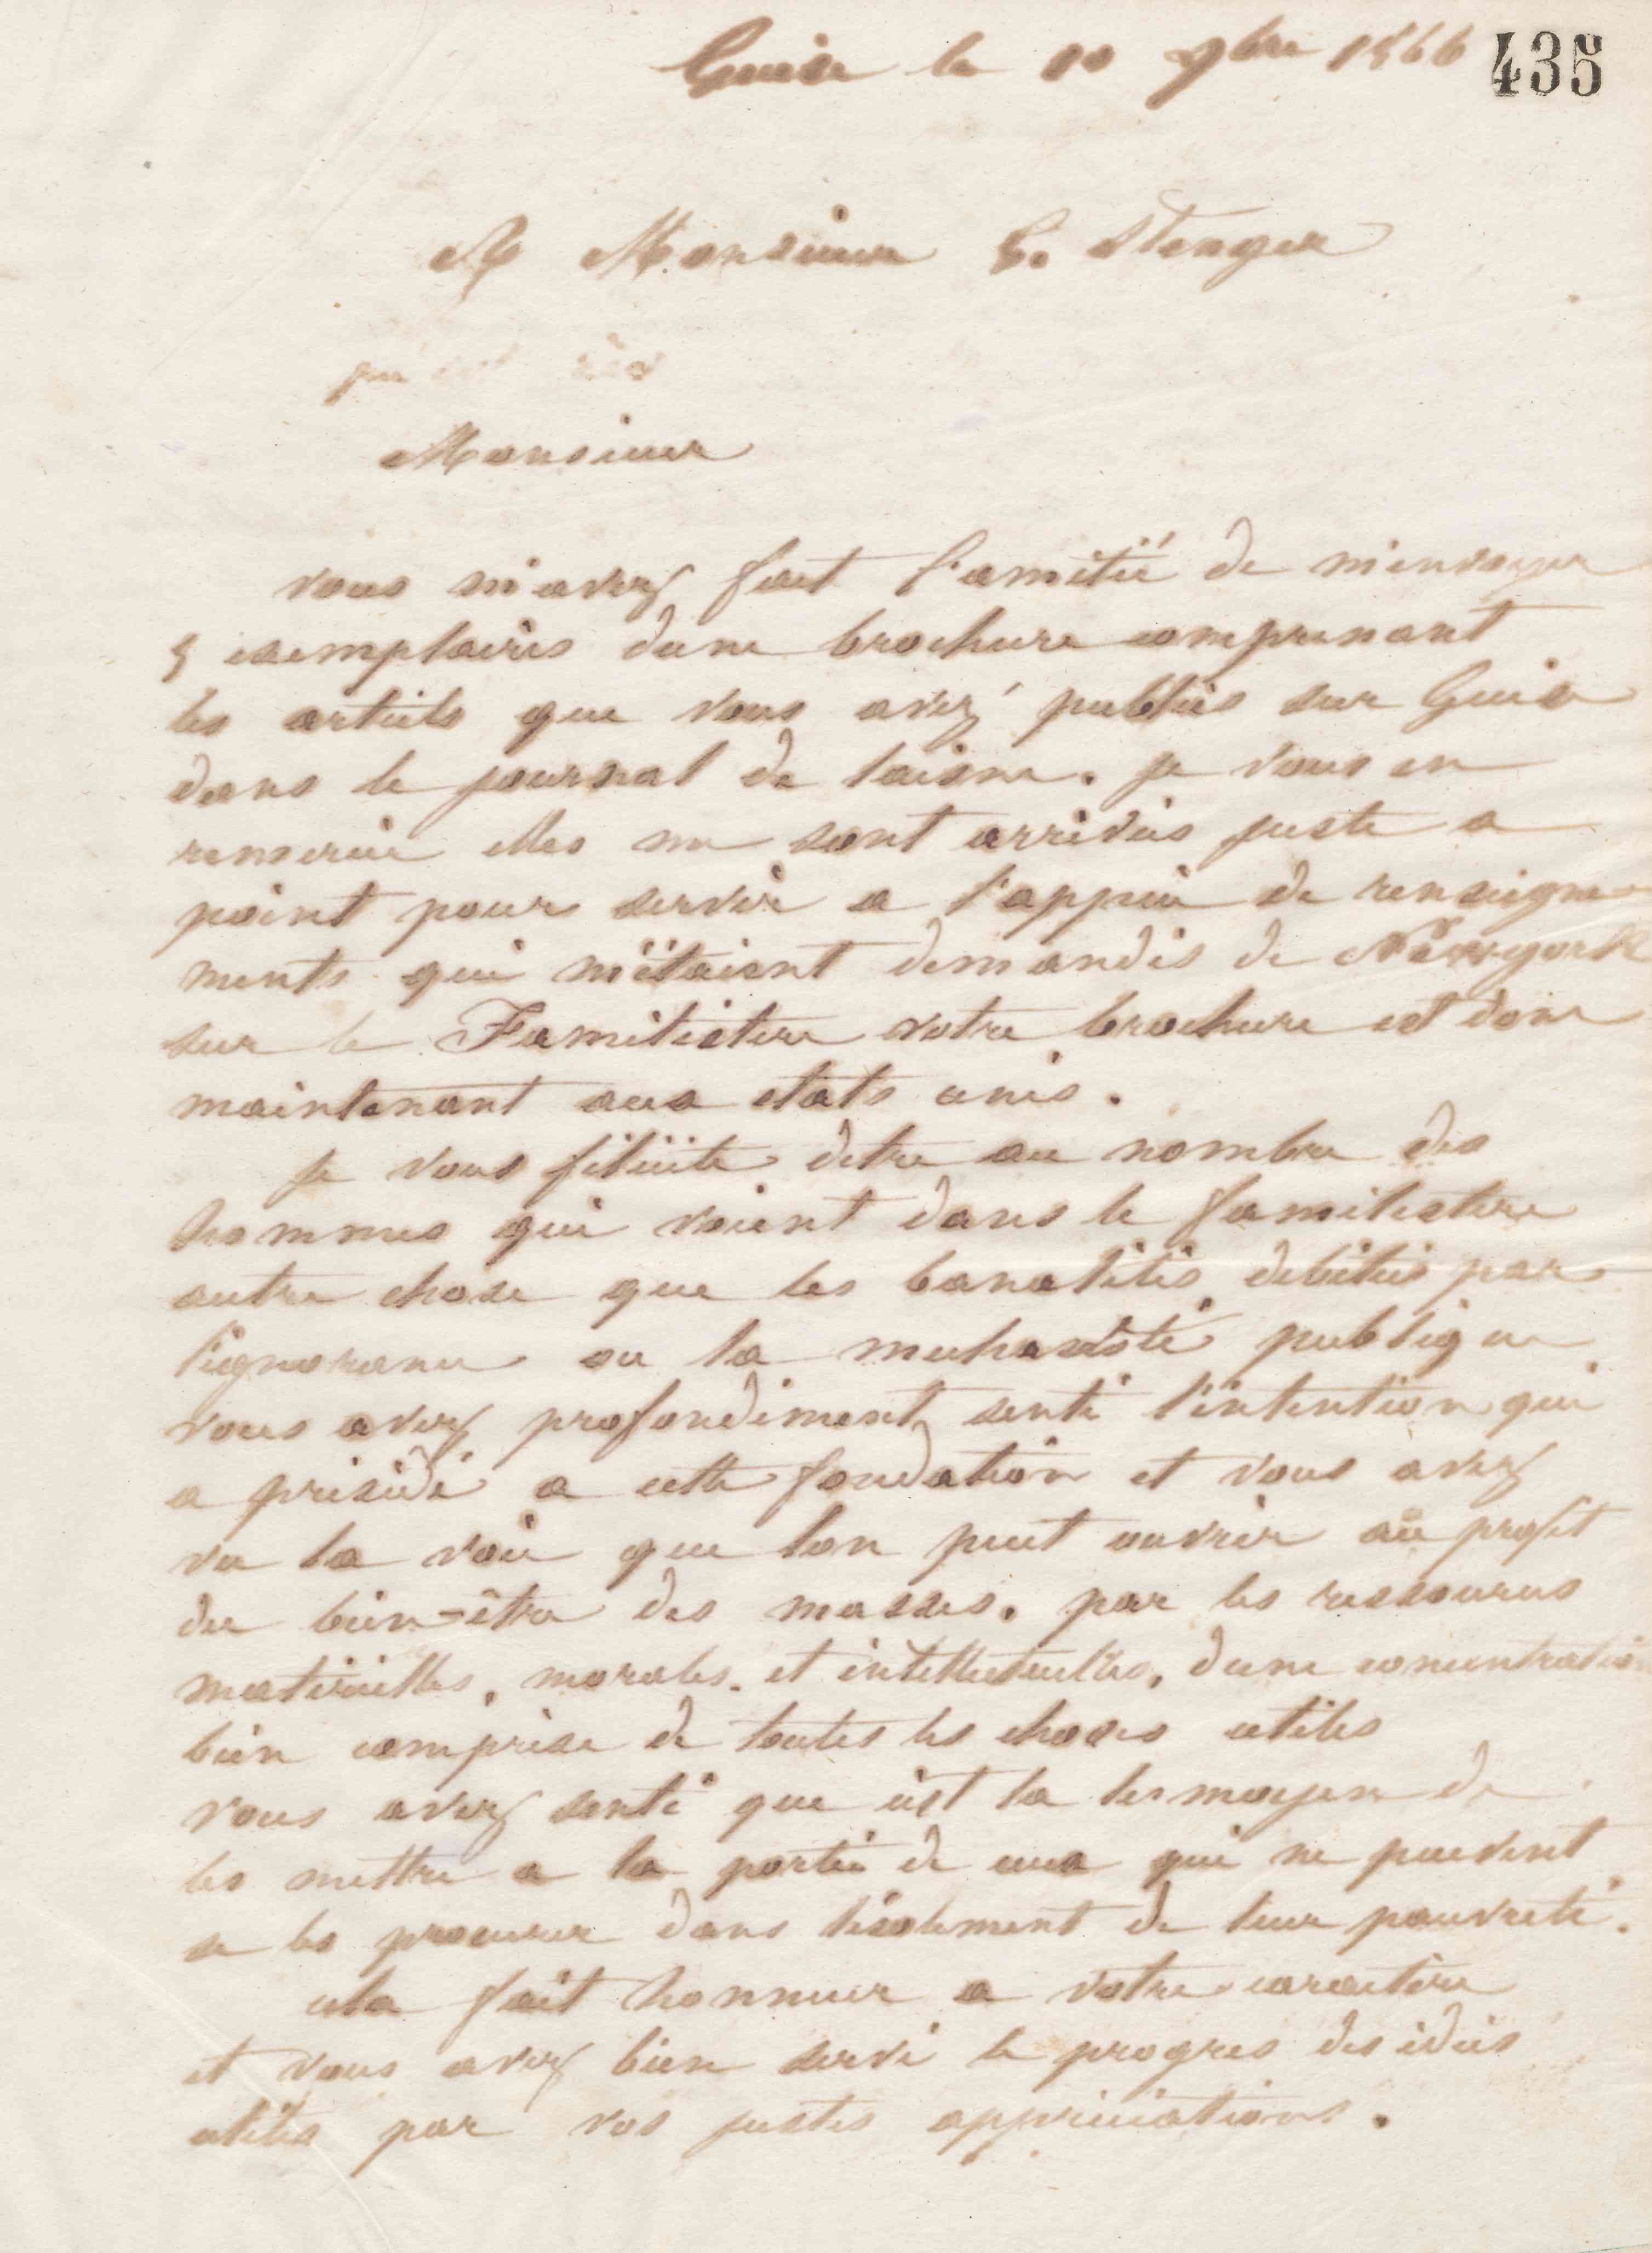 Guise le 10 9bre 1866 435
A Monsieur G. Stenger
Monsieur
vous m'avez fait l'amitié de m'envoyer
5 exemplaires dune brochure comprenant
les articles que vous avez publiés sur Guise
dans le journal de laisne. je vous en
remercie elles me sont arrivées juste a
point pour servir a l'appui de renseigne
ments qui m'étaient demandés de New-york
sur le Familistere votre brochure est donc
maintenant aux etats unis.
je vous félicite detre au nombre des
hommes qui voient dans le familistere
autre chose que les banalités débitées par
l'ignorance ou la mechanceté publique
vous avez profondément senti l'intention qui
a présidé a cette fondation et vous avez
vu la voie que lon peut ouvrir au profit
du bien-être des masses. par les ressources
matérielles, morales. et intellectuelles, dune concentration
bien comprise de toutes les choses utiles
vous avez senti que c'est la le moyen de
les mettre a la portée de ceux qui ne peuvent
se les procurer dans l'isolement de leur pauvreté.
cela fait honneur a votre caractère
et vous avez bien servi le progres des idées
utiles par vos justes appréciations.